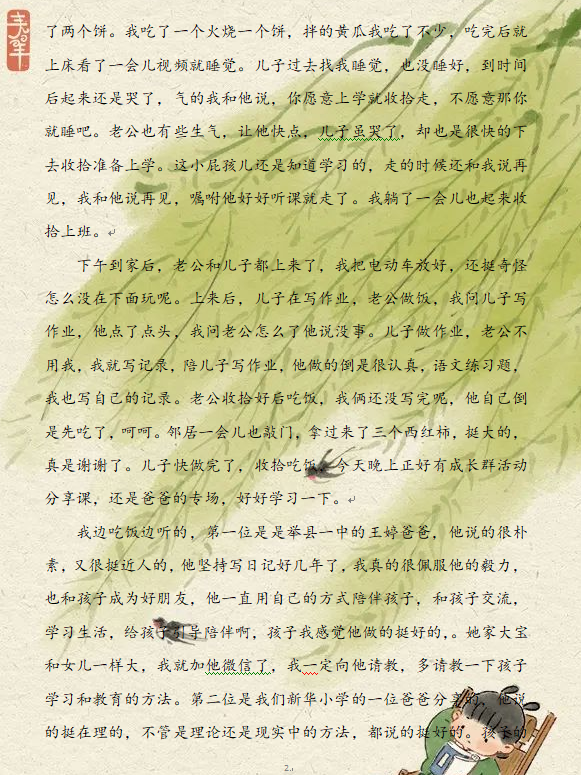 了两个饼。我吃了一个火烧一个饼，拌的黄瓜我吃了不少，吃完后就
上床看了一会儿视频就睡觉。儿子过去找我睡觉，也没睡好，到时间
后起来还是哭了，气的我和他说，你愿意上学就收拾走，不愿意那你
就睡吧。老公也有些生气，让他快点，儿子虽哭了，却也是很快的下
去收拾准备上学。这小屁孩儿还是知道学习的，走的时候还和我说再
见，我和他说再见，嘱咐他好好听课就走了。我躺了一会儿也起来收
拾上班。
下午到家后，老公和儿子都上来了，我把电动车放好，还挺奇怪
怎么没在下面玩呢。上来后，儿子在写作业，老公做饭，我问儿子写
作业，他点了点头，我问老公怎么了他说没事。儿子做作业，老公不
用我，我就写记录，陪儿子写作业，他做的倒是很认真，语文练习题，
我也写自己的记录。老公收拾好后吃饭，我俩还没写完呢，他自己倒
是先吃了，呵呵。邻居一会儿也敲门，拿过来了三个西红柿，挺大的，
真是谢谢了。儿子快做完了，收拾吃饭。今天晚上正好有成长群活动
分享课，还是爸爸的专场，好好学习一下。
我边吃饭边听的，第一位是是莘县一中的王婷爸爸，他说的很朴
素，又很挺近人的，他坚持写日记好几年了，我真的很佩服他的毅力，
也和孩子成为好朋友，他一直用自己的方式陪伴孩子，和孩子交流，
学习生活，给孩子引导陪伴啊，孩子我感觉他做的挺好的，。她家大宝
和女儿一样大，我就加他微信了，我一定向他请教，多请教一下孩子
学习和教育的方法。第二位是我们新华小学的一位爸爸分享的，他说
的挺在理的，不管是理论还是现实中的方法，都说的挺好的。孩子的
2